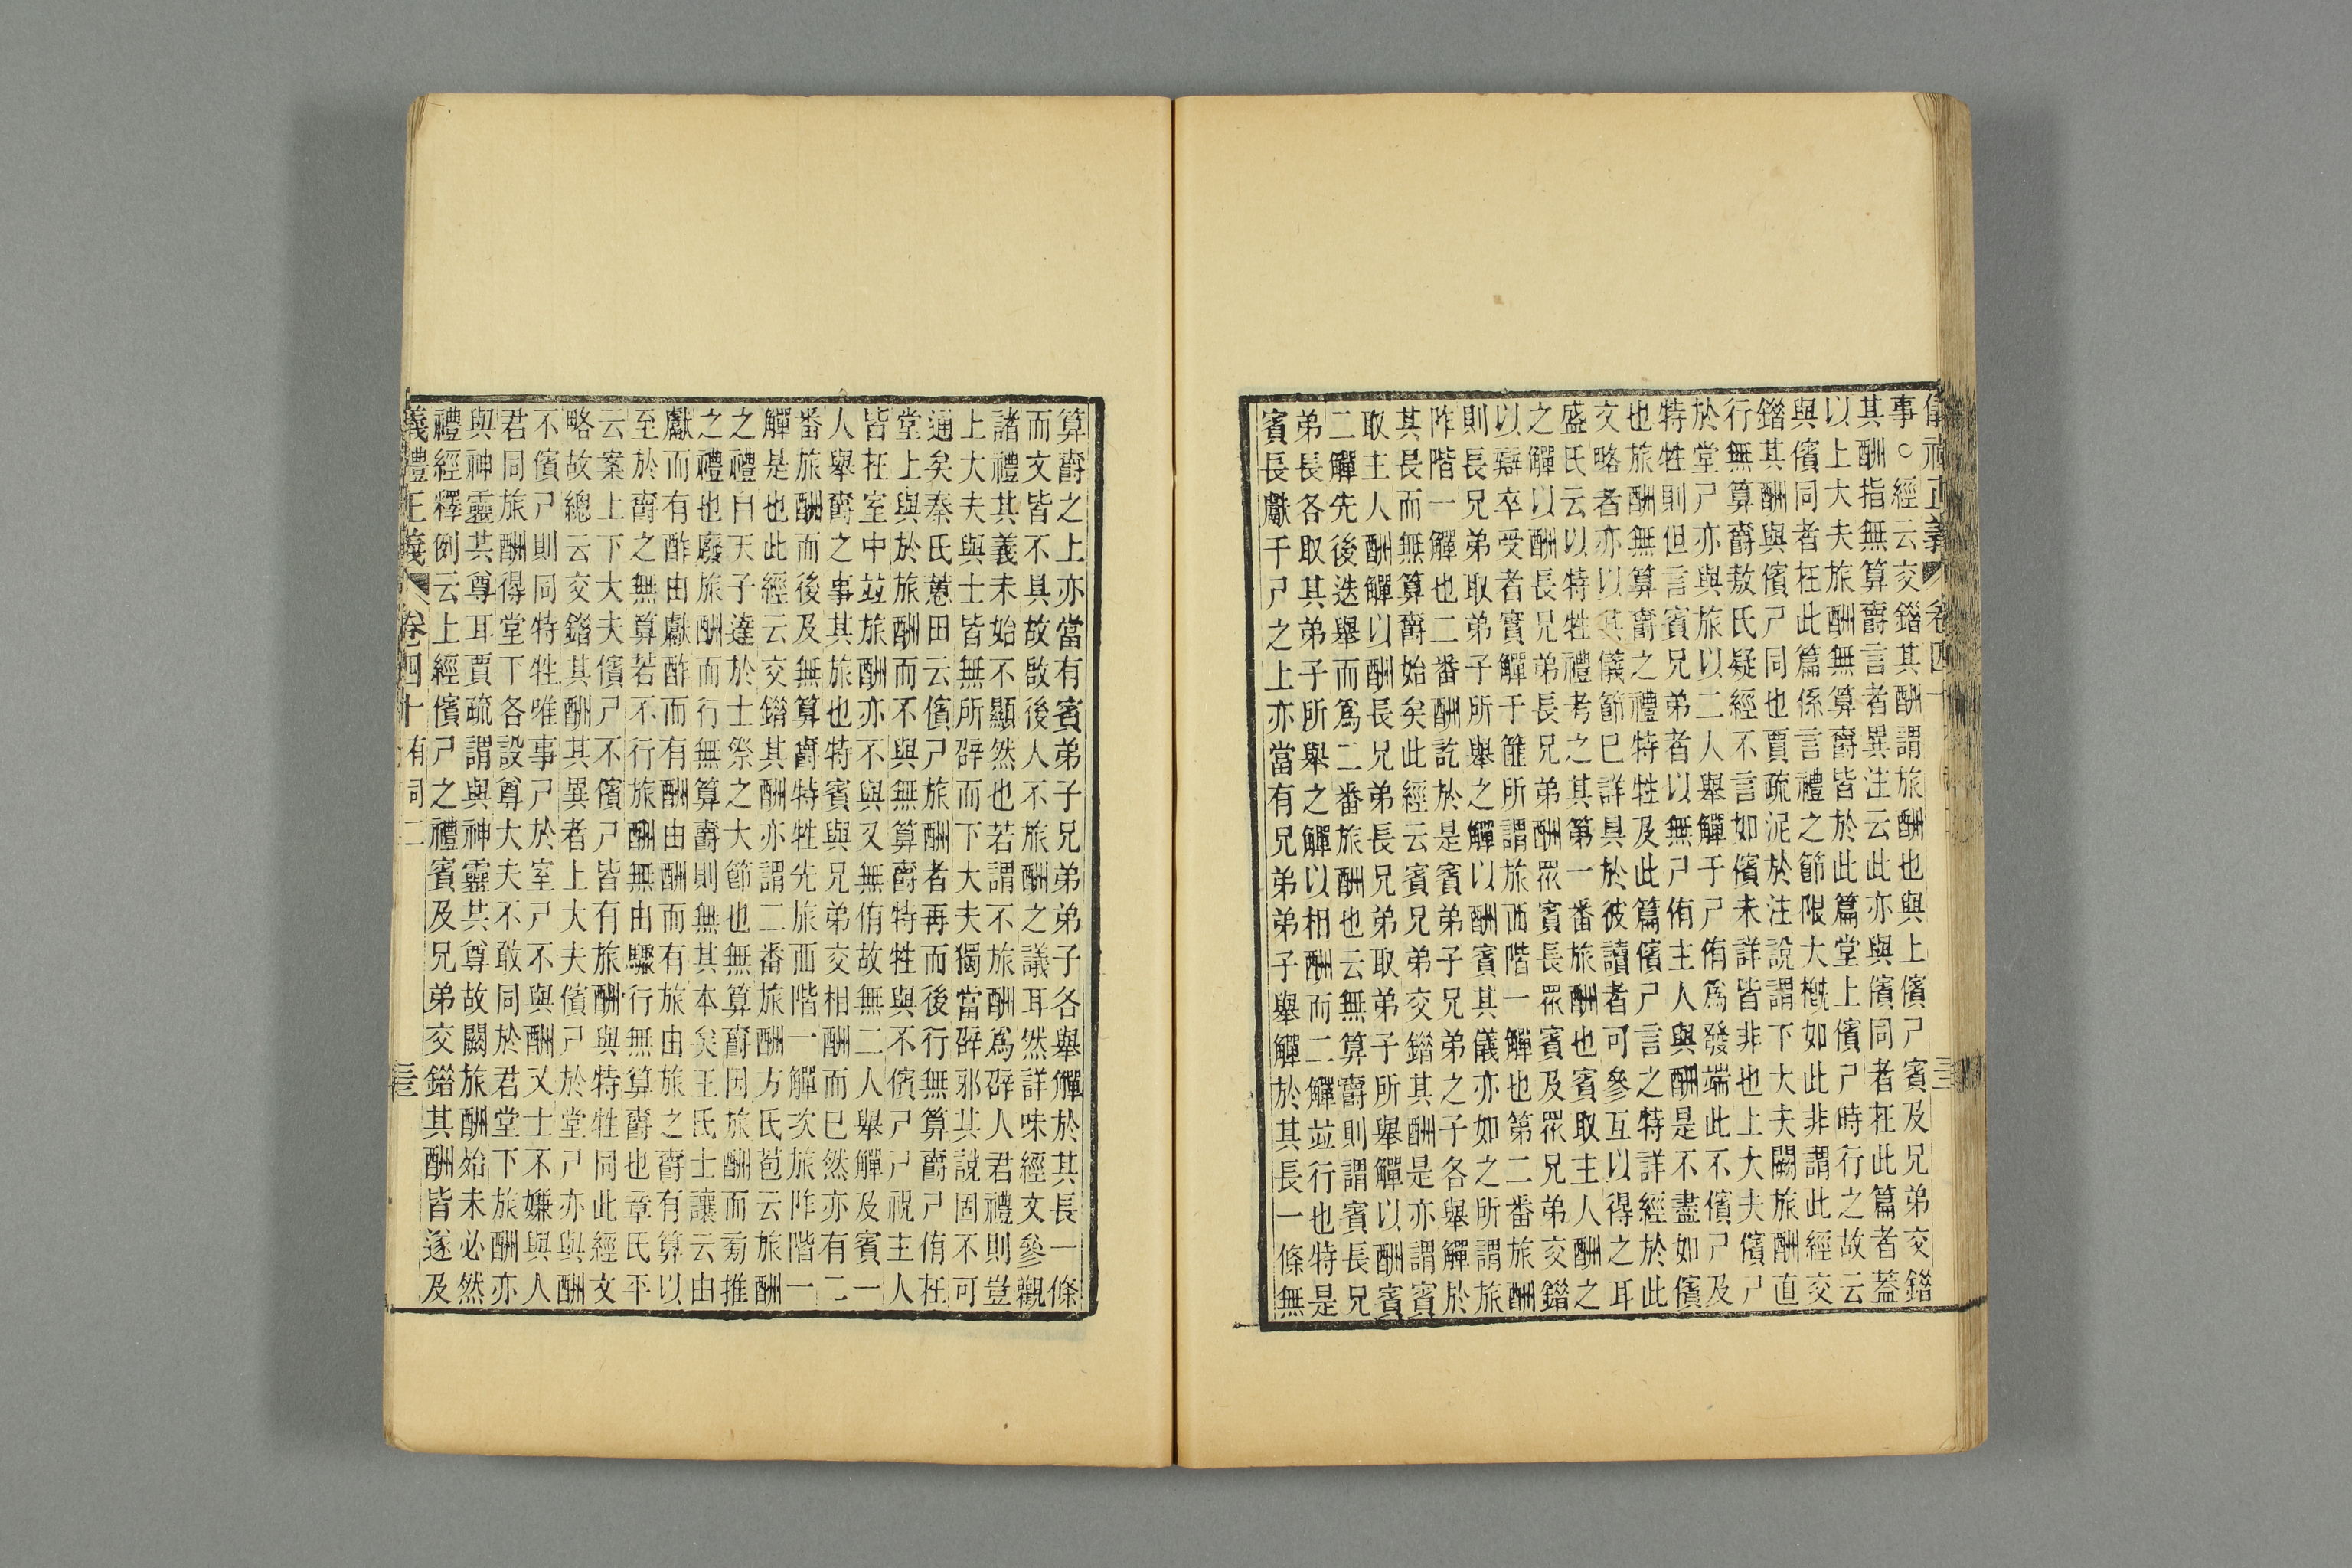 儀禮正義 卷四十
事○經云交錯其酬謂旅酬也與上儐尸賓及兄弟交錯
其酬指無算爵言者異注云此亦與儐同者在此篇者蓋
以上大夫旅酬無算爵皆於此篇堂上儐尸時行之故云
與儐同者在此篇係言禮之節限大槪如此非謂此經交
錯其酬與儐尸同也賈疏泥於注說謂下大夫闕旅酬直
行無算爵敖氏疑經不言如儐未詳皆非也上大夫儐尸
於堂尸亦與旅以二人舉觶于尸侑爲發端此不儐尸及
特牲則但言賓兄弟者以無尸侑主人與酬是不盡如儐
也旅酬無算爵之禮特牲及此篇儐尸言之特詳經於此
文略者亦以其儀節已詳具於彼讀者可參互以得之耳
盛氏云以特牲禮考之其第一番旅酬也賓取主人酬之
之觶以酬長兄弟長兄弟酬眾賓長眾賓及眾兄弟交錯
以辯卒受者實觶于篚所謂旅西階一觶也第二番旅酬
則長兄弟取弟子所舉之觶以酬賓其儀亦如之所謂旅
阼階一觶也二番酬訖於是賓弟子兄弟之子各舉觶於
其長而無算爵始矣此經云賓兄弟交錯其酬是亦謂賓
取主人酬觶以酬長兄弟長兄弟取弟子所舉觶以酬賓
二觶先後迭舉而爲二番旅酬也云無算爵則謂賓長兄
弟長各取其弟子所舉之觶以相酬而二觶並行也特是
賓長獻于尸之上亦當有兄弟弟子舉觶於其長一條無
算爵之上亦當有賓弟子兄弟弟子各舉觶於其長一條
而文皆不具故啟後人不旅酬之議耳然詳味經文參觀
諸禮其義未始不顯然也若謂不旅酬爲辟人君禮則豈
上大夫與士皆無所辟而下大夫獨當辟邪其說固不可
通矣秦氏蕙田云儐尸旅酬者再而後行無算爵尸侑在
堂上與於旅酬而不與無算爵特牲與不儐尸尸祝主人
皆在室中並旅酬亦不與又無侑故無二人舉觶及賓一
人舉爵之事其旅也特賓與兄弟交相酬而已然亦有二
番旅酬而後及無算爵特牲先旅西階一觶次旅阼階一
觶是也此經云交錯其酬亦謂二番旅酬方氏苞云旅酬
之禮自天子達於士祭之大節也無算爵因旅酬而芻推
之禮也廢旅酬而行無算爵則無其本矣王氏士讓云由
獻而有酢由獻酢而有酬由酬而有旅由旅之爵有算以
至於爵之無算若不行旅酬無由驟行無算爵也章氏平
云案上下大夫儐尸不儐尸皆有旅酬與特牲同此經文
略故總云交錯其酬其異者上大夫儐尸於堂尸亦與酬
不儐尸則同特牲唯事尸於室尸不與酬又士不嫌與人
君同旅酬得堂下各設尊大夫不敢同於君堂下旅酬亦
與神靈共尊耳賈疏謂與神靈共尊故闕旅酬始未必然
禮經釋例云上經儐尸之禮賓及兄弟交錯其酬皆遂及
儀禮正義 卷四十 有司二